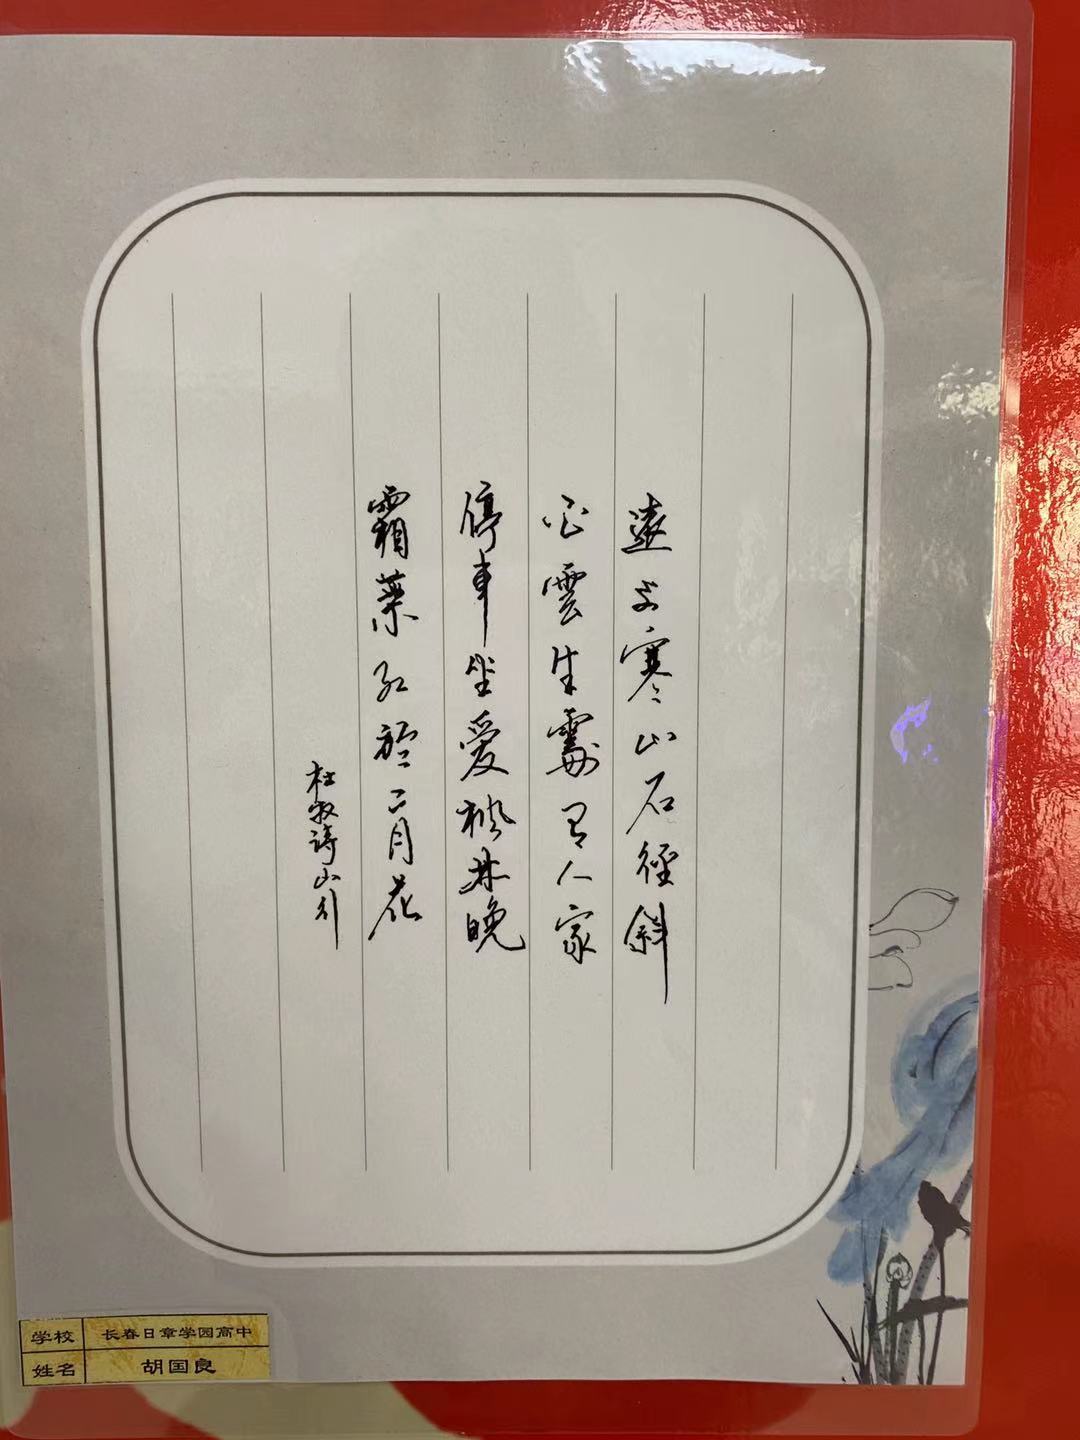 遠上寒山石徑斜
白雲生處有人家
停車坐愛楓林晚
霜葉紅於二月花
杜牧詩山行
学校 长春日章学园高中
姓名 胡国良